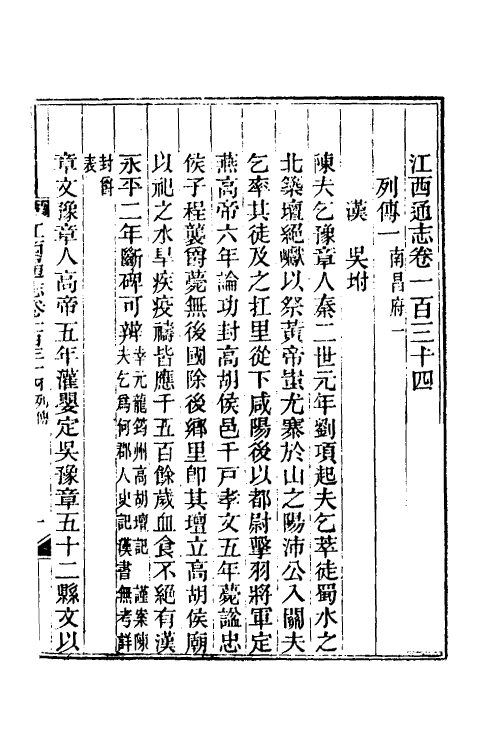 江西通志卷一百三十四
列傳一 南昌府一
漢 吳坿
陳夫乞豫章人秦二世元年劉項起夫乞萃徒蜀水之
北築壇絕巘以祭黃帝蚩尤寨於山之陽沛公入關夫
乞率其徒及之扛里從下咸陽後以都尉擊羽將軍定
燕高帝六年論功封高胡侯邑千戸孝文五年薨諡忠
侯子程襲爵薨無後國除後鄉里卽其壇立高胡侯廟
以祀之水旱疾疫禱皆應千五百餘歲血食不絕有漢
永平二年斷碑可辨 幸元龍筠州高胡壇記 謹案陳
夫乞爲何郡人史記漢書無考詳
封爵
表
章文豫章人高帝五年灌嬰定吳豫章五十二縣文以
江西通志卷一百三十四 列傳 一